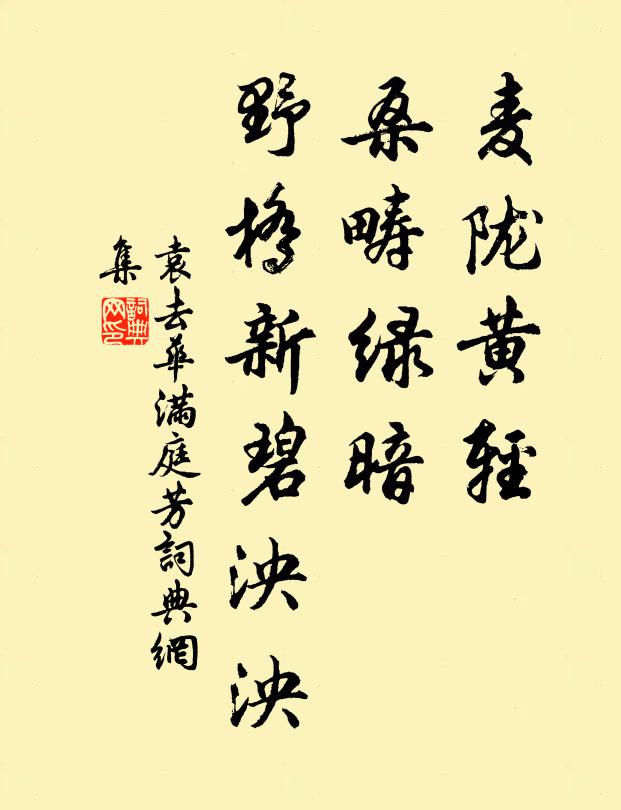 麦陇黄轻
桑畴绿暗
野桥新碧泱泱
袁去华满庭芳詞典網
集
詞典网印